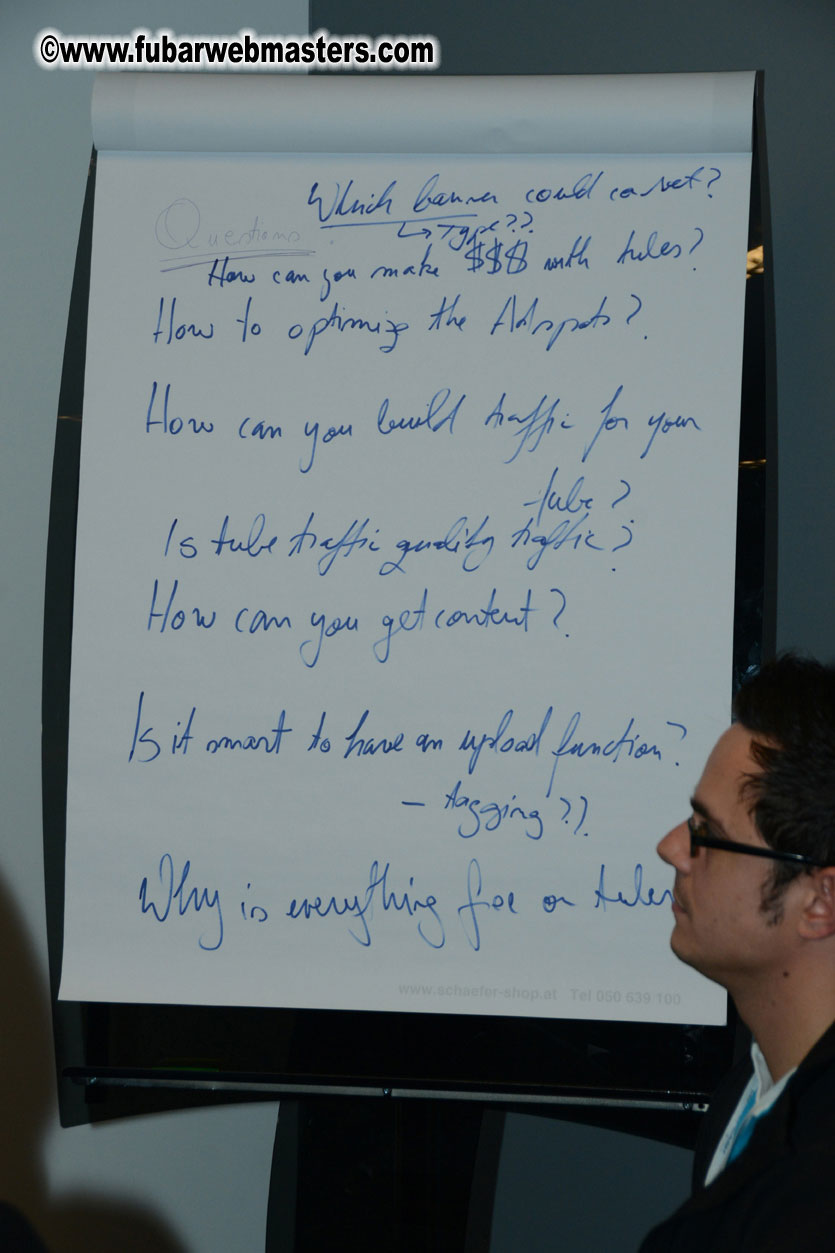 ©www.fubarwebmasters.com
Which banner could convert?
Questions
↳ Type??
How can you make $$$ with tubes?
How to optimize the Adspots?
How can you build traffic for your
tube?
Is tube traffic quality traffic?
How can you get content?
Is it smart to have an upload function?
- tagging??
Why is everything free on tubes
www.schaefer-shop.at Tel 050 639 100